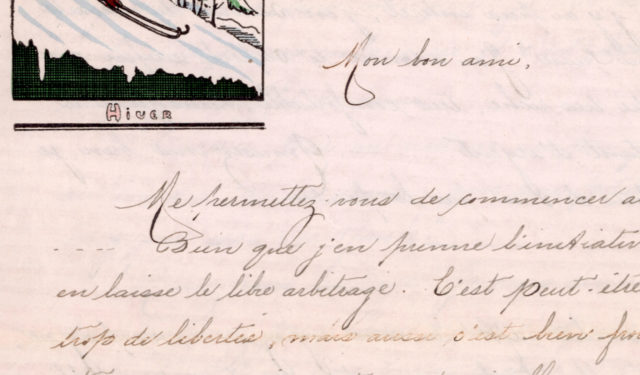 Hiver
Mon bon ami,
Me permettez-vous de commencer a
.... Bien que j'en prenne l'initiativ
en laisse le libre arbitrage. C'est peut-être
trop de libertés, mais aussi c'est bien fro